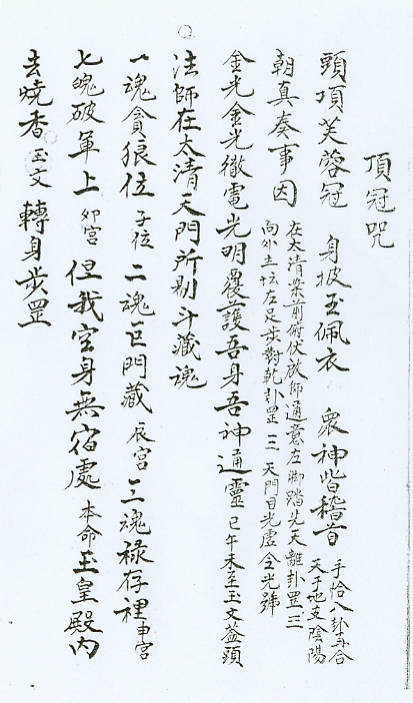 頂冠咒
頭頂芙蓉冠 身披玉佩衣 衆神皆稽首 手恰八卦再合
天干地支陰陽
朝真奏事因 在太清案前俯伏放師通意左脚踏先天離卦罡三
向外主坛左足步對乾卦罡三 天門日光虛合光號
金光金光徹電光明覆護吾身吾神通靈 巳午未至玉文蓋頭
法師在太清天門所剔斗藏魂
一魂貪狼位 子位 二魂巨門藏 辰宮 三魂祿存裡 申宮
七魄破軍上 卯宮 但我空身無宿處 本命 玉皇殿內
去燒香 玉文 轉身步罡